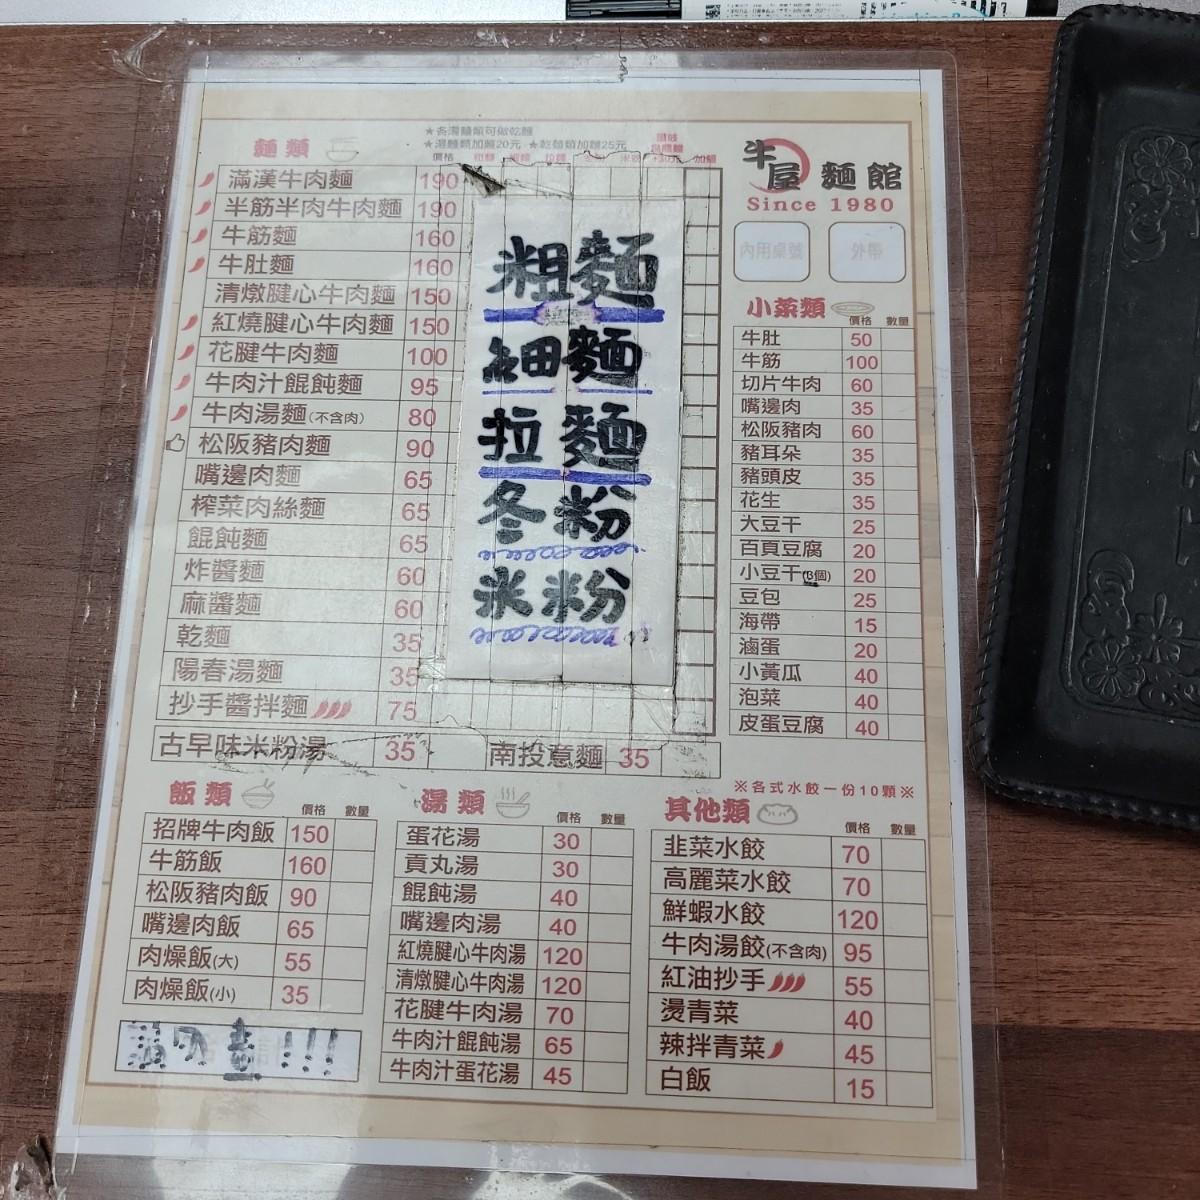 麵類
★各湯麵類可做乾麵
★湯麵類加麵20元 ★乾麵類加麵25元
價格 粗麵 拉麵 加麵
滿漢牛肉麵 190
半筋半肉牛肉麵 190
牛筋麵 160
牛肚麵 160
清燉腱心牛肉麵 150
紅燒腱心牛肉麵 150
花腱牛肉麵 100
牛肉汁餛飩麵 95
牛肉湯麵(不含肉) 80
松阪豬肉麵 90
嘴邊肉麵 65
榨菜肉絲麵 65
餛飩麵 65
炸醬麵 60
麻醬麵 60
乾麵 35
陽春湯麵 35
抄手醬拌麵 75
古早味米粉湯 35 南投意麵 35
粗麵
細麵
拉麵
冬粉
米粉
牛屋麵館
Since 1980
內用桌號 外帶
小菜類 價格 數量
牛肚 50
牛筋 100
切片牛肉 60
嘴邊肉 35
松阪豬肉 60
豬耳朵 35
豬頭皮 35
花生 35
大豆干 25
百頁豆腐 20
小豆干(3個) 20
豆包 25
海帶 15
滷蛋 20
小黃瓜 40
泡菜 40
皮蛋豆腐 40
飯類 價格 數量
招牌牛肉飯 150
牛筋飯 160
松阪豬肉飯 90
嘴邊肉飯 65
肉燥飯(大) 55
肉燥飯(小) 35
湯類 價格 數量
蛋花湯 30
貢丸湯 30
餛飩湯 40
嘴邊肉湯 40
紅燒腱心牛肉湯 120
清燉腱心牛肉湯 120
花腱牛肉湯 70
牛肉汁餛飩湯 65
牛肉汁蛋花湯 45
※各式水餃一份10顆※
其他類 價格 數量
韭菜水餃 70
高麗菜水餃 70
鮮蝦水餃 120
牛肉湯餃(不含肉) 95
紅油抄手 55
燙青菜 40
辣拌青菜 45
白飯 15